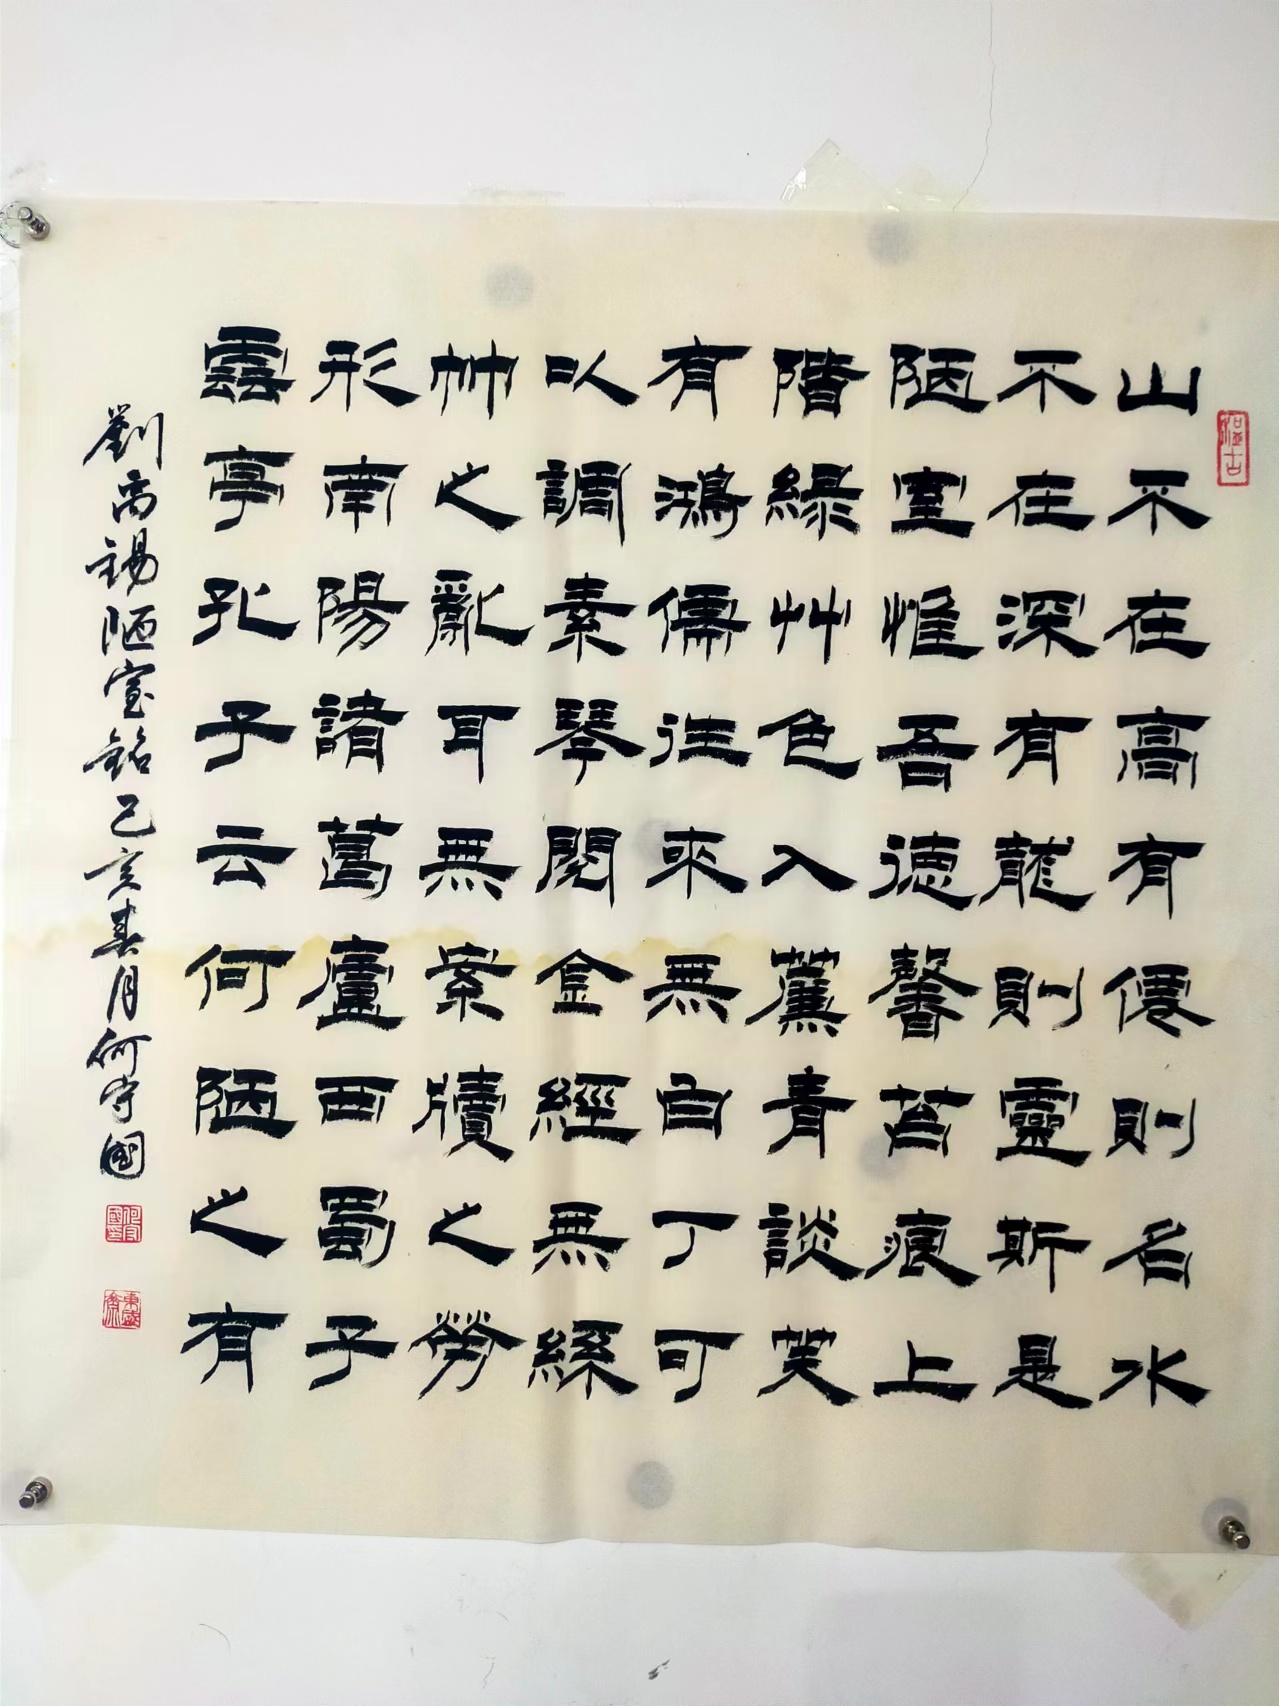 山不在高有僊則名水
不在深有龍則靈斯是
陋室惟吾德馨苔痕上
階緑艸色入薰青談笑
有鴻儒往來無白丁可
以調素琴閱金經無絲
竹之亂耳無案牘之勞
形南陽諸葛廬西蜀子
雲亭孔子云何陋之有
劉禹錫陋室銘己亥春月何守國